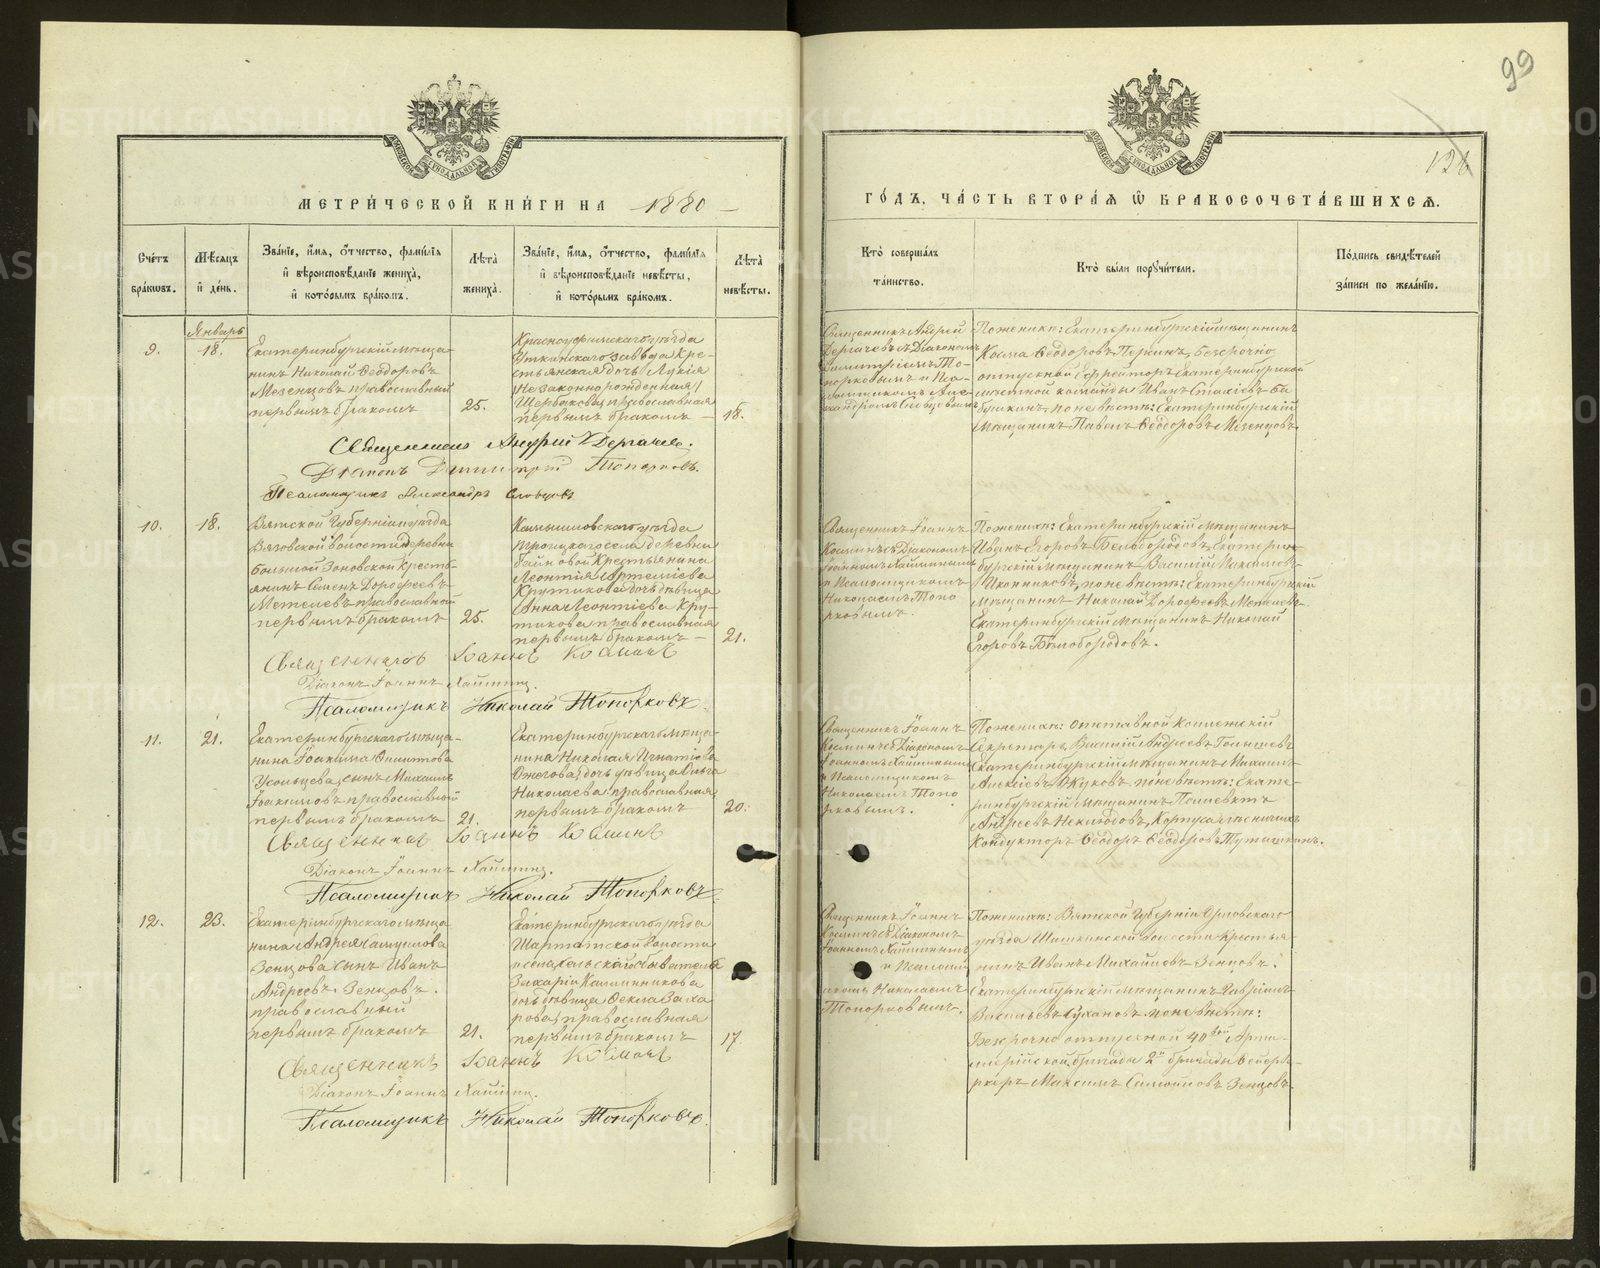 99
126
МЕТРИ́ЧЕСКОЙ КНИ́ГИ НА 1880 –
ГО́ДЪ, ЧА́СТЬ ВТОРА́Я Ѡ҆ БРАКОСОЧЕТА́ВШИХСѦ.
Сче́тъ бра́кѡвъ.
Мѣ́сяцъ и҆ де́нь.
Зва́нїе, и҆́мя, ѻ҆́тчество, фами́лїя и҆ вѣроисповѣ́данїе жениха̀, и҆ кото́рымъ бра́комъ.
Лѣ́та жениха̀.
Зва́нїе, и҆́мя, ѻ҆́тчество, фами́лїя и҆ вѣроисповѣ́данїе невѣ́сты, и҆ кото́рымъ бра́комъ.
Лѣ́та невѣ́сты.
Кто̀ соверша́лъ та́инство.
Кто̀ бы́ли порꙋчи́тели.
По́дпись свидѣ́телей за́писи по жела́нїю.
Январь
9.
18.
Екатеринбургскій мѣща-
нинъ Николай Ѳеодоровъ
Мезенцовъ православный
первымъ бракомъ
25.
Красноуфимскаго уѣзда
Уткинскаго завода Кре-
стьянская дочь Лукія
(Незаконнорожденная)
Щербакова, православная
первымъ бракомъ –
18.
Священникъ Андрей
Дергачевъ съ Діакономъ
Димитріемъ То-
порковымъ и Пса-
ломщикомъ Алек-
сандромъ Словцовымъ
По женихѣ: Екатеринбургскій мѣщанинъ
Косма Ѳеодоровъ Перинъ, безсрочно
отпускной Ефрейторъ Екатеринбургской
мѣстной команды Иванъ Стахіевъ Ба-
бушкинъ, по невѣстѣ: Екатеринбургскій
мѣщанинъ Павелъ Ѳеодоровъ Мезенцовъ.
Священникъ Андрей Дергачевъ.
Діаконъ Димитрій Топорковъ.
Псаломщикъ Александръ Словцовъ
10.
18.
Вятской Губерніи уѣзда
Вязовской волости деревни
Большой Зоновской кресть-
янинъ Семенъ Дорофеевъ
Метелевъ православной
первымъ бракомъ
25.
Камышловскаго уѣзда
Троицкаго села деревни
Байновой Крестьянина
Леонтія Артеміева
Крутикова дочь дѣвица
Анна Леонтіева Кру-
тикова православная
первымъ бракомъ –
21.
Священникъ Іоаннъ
Косминъ съ Діакономъ
Іоанномъ Хлопинымъ
и Псаломщикомъ
Николаемъ Топо
рковымъ.
По женихѣ: Екатеринбургскій мѣщанинъ
Иванъ Егоровъ Бѣлобородовъ, Екатерин-
бургскій мѣщанинъ Василій Максимов
Иконниковъ, по невѣстѣ: Екатеринбургскій
мѣщанинъ Николай Дорофеевъ Метелевъ
Екатеринбургскій мѣщанинъ Николай
Егоровъ Бѣлобородовъ.
Священникъ Іоаннъ Косминъ
Діаконъ Іоаннъ
Псаломщикъ Николай Топорковъ.
11.
21.
Екатеринбургскаго мѣща-
нина Іоакима Филитова
Усольцева сынъ Михаилъ
Іоакимовъ православной
первымъ бракомъ
21.
Екатеринбургскаго мѣща-
нина Николая Игнатіева
Ожегова дочь дѣвица Ольга
Николаева православная
первымъ бракомъ
20.
Священникъ Іоаннъ
Косминъ съ Діакономъ
Іоанномъ
и Псаломщикомъ
Николаемъ Топо
рковымъ.
По женихѣ: отставной Коллежскій
Секретарь Василій Андреевъ Голышевъ
Екатеринбургскій мѣщанинъ Михаилъ
Алексѣевъ Жуковъ, по невѣстѣ: Екате-
ринбургскій мѣщанинъ Поліевктъ
Андреевъ Неклюдовъ, Корпуса лѣсничихъ
Кондукторъ Ѳеодоръ Ѳеодоровъ
Священникъ Іоаннъ Косминъ
Діаконъ Іоаннъ
Псаломщикъ Николай Топорковъ.
12.
23.
Екатеринбургскаго мѣща
нина Андрея Самуилова
Зенцова сынъ Иванъ
Андреевъ Зенцовъ.
православный
первымъ бракомъ
21.
Екатеринбургскаго уѣзда
Шарташской волости
и села сельскаго обывателя
Захарія Калинникова
дочь дѣвица Ѳекла Заха
рова, православная
первымъ бракомъ
17
Священникъ Іоаннъ
Косминъ съ Діакономъ
Іоанномъ
и Псалом
щикомъ Николаемъ
Топорковымъ.
По женихѣ: Вятской Губерніи Орловскаго
уѣзда волости крестья-
нинъ Иванъ Михайловъ Зенцовъ.
Екатеринбургскій мѣщанинъ Гавріилъ
Васильевъ Сухановъ, по невѣстѣ:
Безсрочно отпускной 40 вой Арти-
лерійской бригады 2й батареи Фейервер-
керъ Максимъ Самойловъ Зенцовъ.
Священникъ Іоаннъ Косминъ
Діаконъ Іоаннъ
Псаломщикъ Николай Топорковъ.
METRIKI.GASO-URAL.RU